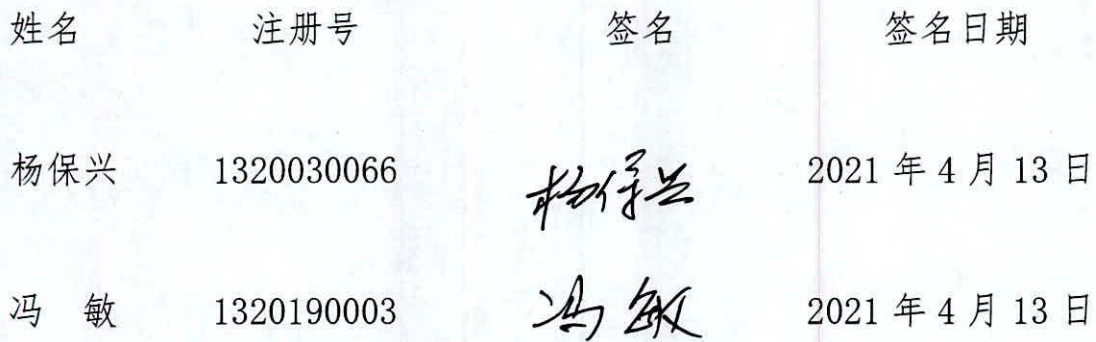 姓名 注册号 签名 签名日期
杨保兴 1320030066 杨保兴 2021 年 4 月 13 日
冯 敏 1320190003 冯敏 2021 年 4 月 13 日